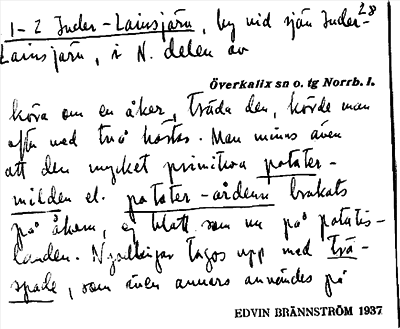 28
1-2 Inder-Lainsjärv, by vid sjön Inder-
Lainsjärv, i N. delen av
Överkalix sn o. tg Norrb. l.
köra om en åker, träda den, körde man
ofta med två hästar. Man minns även
att den mycket primitiva potater-
milden el. potater-årdenn brukats
på åkern, ej blott som nu på potatis-
landen. Nyodlingar togos upp med trä-
spade, som även annars användes på
EDVIN BRÄNNSTRÖM 1937